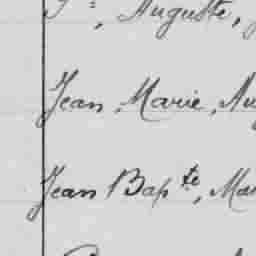 Auguste,
Jean Marie, Au
Jean Bapte, Mar